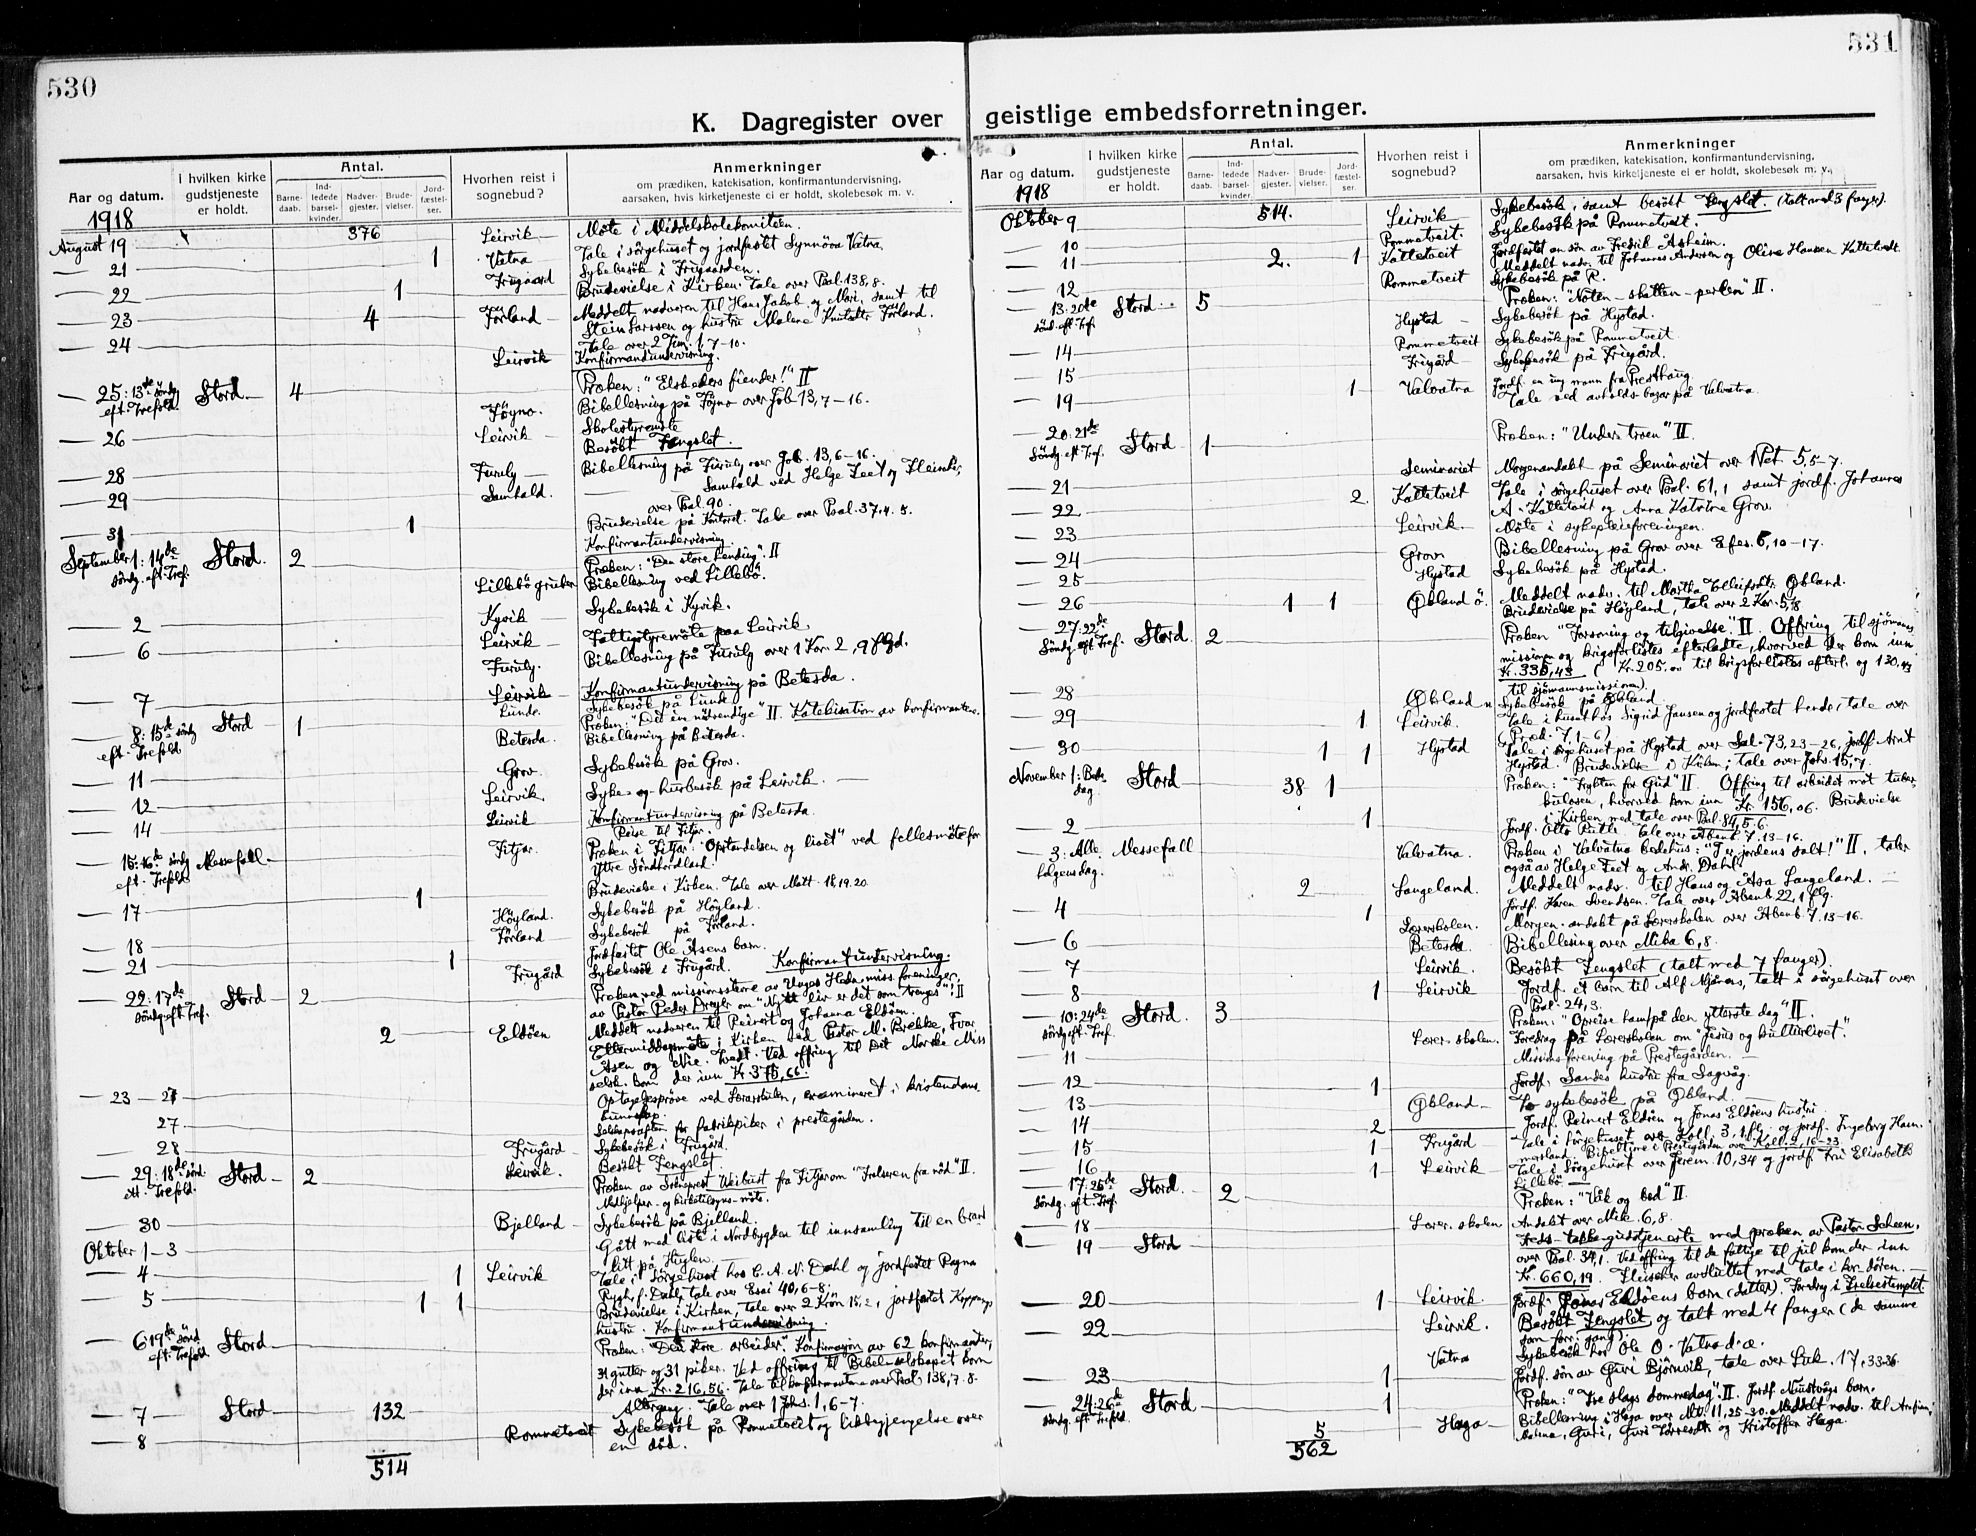 530
K. Dagregister over
Aar og datum.
I hvilken kirke gudstjeneste er holdt.
Antal.
Barne-daab.
Ind-ledede barsel-kvinder.
Nadver-gjester.
Brude-vielser.
Jord-fæstel-ser.
Hvorhen reist i sognebud?
Anmerkninger
om prædiken, katekisation, konfirmantundervisning,
aarsaken, hvis kirketjeneste ei er holdt, skolebesøk m. v.
1918
August 19 376 Leirvik Møte i Middelskolekomiteen.
— 21 1 Vatna Tale i sørgehuset og jordfæstet Synnöva Vatna
Frugaard Sykebesök i Frugaarden.
— 22 1 Brudevielse i Kirken. Tale over Psal. 138,8.
— 23 4 Förland Meddelt nadveren til Hans Jakob og Mari, samt til
Stein Larssen og hustru Malene Förland.
— 24 Tale over 2 Tim. 1, 7-10.
Leirvik Konfirmandundervisning.
— 25: 13de söndg eft. Trefold. Stord 4 Præken: "Elsk eders fiender!" II
Föyno. Bibellesning på Föyno over Job 13, 7-16.
— 26 Leirvik Skolestyremöte
Besökt Fengslet.
— 28 Furuly Bibellesning på Furuly over Job. 13, 6-16.
— 29 Samhald. Samhald ved Helge Leet og
over Psal. 90.
— 31 1 Brudevielse på Kontoret. Tale over Psal. 37, 4. 5.
Konfirmantundervisning.
September 1: 14de söndg. eft. Tref. Stord. 2 Præken: "Den store Lending". II
Lillebö gruber Bibellesning ved Lillebö.
— 2 Kyvik Sykebesök i Kyvik.
— 6 Leirvik Fattigstyremöte paa Leirvik.
Furuly. Bibellesning på Furuly over 1 Kor. 2, 9 flgd.
— 7 Leirvik Konfirmantundervisning på Betesda.
Lunde. Sykebesök på Lunde
— 8: 15de söndg eft. Trefold Stord 1 Præken: "Det ene nödvendige" II. Katekisation av konfirmantene.
Betesda. Bibellesning på Betesda.
— 11 Grov. Sykebesök på Grov.
— 12 Leirvik Syke og husbesök på Leirvik.
— 14 Leirvik Konfirmantundervisning på Betesda.
Reise til Fitjar.
— 15: 16de söndg eft. Trefold Messefall. Fitjar. Præken i Fitjar: "Opstandelsen og livet" ved fellesmöte for
ytre Söndhordland.
— 17 1 Brudevielse i Kirken. Tale over Matt. 18, 19. 20.
Höyland. Sykebesök på Höyland.
— 18 Förland Sykebesök på Förland.
— 21 1 Jordfæstet Ole Åsens barn.
Frugård Sykebesök i Frugård. Konfirmantundervisning.
— 22: 17de söndg. eft. Tref. Stord 2 Præken ved missionsstevne av Unges Hedn. miss. foreninger,
av Pastor Peder om "Nytt liv er det som trenges"! II
2 Eldöen Meddelt nadveren til Reinert og Johanna Eldöen.
Ettermiddagsmöte i Kirken ved Pastor M. Brekke, Ivar
Åsen og Nic. Tvedt. Ved offring til Det Norske Miss
selsk. kom der inn Kr. 375,66.
— 23 — 27 Optagelsespröve ved Lærerskolen, examinert i kristendoms-
kunnskap.
27 Selskapsaften for fabrikpiker i prestegården.
— 28 Frugård Sykebesök i Frugård.
Leirvik. Besökt Fengslet.
— 29: 18de sönd. eft. Trefold. Stord 2 Præken av Sokneprest Veibust fra Fitjar om "Frelseren fra nöd" II.
Medhjelper- og kirketilsyns-möte.
— 30 Bjelland Sykebesök på Bjelland.
Oktober 1-3 Gått med liste i Nordbygden til innsamling til en brand
lidt på Huglen.
— 4 1 Leirvik Tale i Sörgehuset hos C. A. N. Dahl og jordfæstet Ragna
Rygh, f. Dahl, tale over Esai 40, 6-8.
— 5 1 1 Brudevielse i Kirken, tale over 2 Krön 15, 2, jordfæstet
hustru. Konfirmantundervisning.
— 6: 19de sönd. eft. Trefold Stord Præken: "Den store arbeider". Konfirmasjon av 62 konfirmanter,
31 gutter og 31 piker. Ved offring til Bibelselskapet kom
der inn Kr. 216,56. Tale til konfirmantene over Psal. 138, 7. 8.
— 7 Stord 132 Altergang. Tale over 1 Johs. 1, 6-7.
— 8 Rommetveit Sykebesök på Rommetveit og likbegjengelse over
en död.
514
531
geistlige embedsforretninger.
Aar og datum.
I hvilken kirke gudstjeneste er holdt.
Antal.
Barne-daab.
Ind-ledede barsel-kvinder.
Nadver-gjester.
Brude-vielser.
Jord-fæstel-ser.
Hvorhen reist i sognebud?
Anmerkninger
om prædiken, katekisation, konfirmantundervisning,
aarsaken, hvis kirketjeneste ei er holdt, skolebesøk m. v.
1918
Oktober 9 514. Leirvik Sykebesök, samt besökt Fengslet. (talt med 3 fanger).
— 10 Rommetveit. Sykebesök på Rommetveit.
— 11 2. 1 Kattetveit Jordfæstet en sön av Fredrik Åsheim.
Meddelt nadv. til Johannes Andersen og Oline Hansen Kattetvedt.
— 12 Rommetveit Sykebesök på R.
— 13: 20de sönd. eft. Tref. Stord 5 Præken: "Noten - skatten - perlen" II.
Hystad Sykebesök på Hystad.
— 14 Rommetveit Sykebesök på Rommetveit
— 15 Frigård Sykebesök på Frigård.
— 19 1 Valvatna Jordf. en ung mann fra Presthaug
Tale ved avholdsbazar på Valvatna.
— 20: 21de Söndg. eft. Tref. Stord 1 Præken: "Under troen" II.
Seminariet Morgenandakt på Seminariet over 1 Pet. 5, 5-7.
— 21 2. Kattetveit Tale i sörgehuset over Psal. 61, 1 samt jordf. Johannes
— 22 A. Kattetveit og Anna Katrine Grov.
— 23 Leirvik Möte i sykepleieforeningen.
— 24 Grov Bibellesning på Grov over Efes. 6, 10-17.
— 25 Hystad Sykebesök på Hystad.
— 26 1 1 Øbland ö. Meddelt nadv. til Martha Tolleifsdtr. Øbland.
Brudevielse på Höyland, tale over 2 Kor. 5, 8
— 27: 22de Söndg. eft. Tref. Stord. 2 Præken "Forsoning og tilgivelse." II. Offring til sjömanns
missionen og krigsforlistes efterladte, hvorved der kom inn
Kr. 335,43 (Kr. 205.00 til krigsforlistes efterl. og 130,43
til sjömannsmissionen).
— 28 Øbland n Sykebesök på Øbland
— 29 1 Leirvik. Tale i huset hos Sigrid Jansen og jordfæstet hende (tale over
Præd. 7, 1-6)
— 30 1 1 Hystad Tale i sörgehuset på Hystad over Sal. 73, 23-26, jordf. Arnt
Hystad. Brudevielse i Kirken; tale over Johs. 15, 7.
November 1: Bededag Stord 38 1 Præken: "Frykten for Gud" II. Offring til arbeidet mot tuber-
kulosen, hvorved kom inn Kr. 156,06. Brudevielse
i Kirken med tale over Psal. 84, 5-6.
— 2 1 Jordf. Otto Rutle. Tale over Åbenb. 7, 13-16.
— 3: Alle helgensdag. Messefall Valvatna. Præken i Valvatna bedehus: "I er jordens salt!" II, taler
også av Helge Leet og Andr. Dahl.
2 Langeland. Meddelt nadv. til Hans og Åsa Langeland.
— 4 1 Jordf. Karen Svendsen. Tale over Åbenb. 22, 1 flg.
Lærerskolen. Morgen-andakt på Lærerskolen over Åbenb. 7. 13-16.
— 6 Betesda Bibellesning over Mika 6, 8.
— 7 Leirvik. Besökt Fengslet (talt med 7 fanger).
— 8 1 Leirvik Jordf. et barn til Alf Mjönes, talt i sörgehuset over
Psal. 24, 3.
— 10: 24de söndg. eft. Tref. Stord. 3 Præken: "Opreise ham på den ytterste dag" II.
Lærerskolen. Foredrag på Lærerskolen om "Jesus og kulturlivet".
— 11 Missionsforening på Prestegården.
— 12 1 Jordf. Sandes hustru fra Sagvåg.
— 13 Øbland To sykebesök på Øbland
— 14 2 Jordf. Reinert Eldöen og Jonas Eldöens hustru
— 15 1 Frugård Tale i sörgehuset over Koll. 3, 1 flg. og jordf. Ingeborg Ham-
mersland. Bibeltime i Prestegården over Koll. 2, 16-23.
— 16 1 Leirvik Tale i Sörgehuset over Jerem. 10, 34 og jordf. Fru Elisabeth
Lillebö
— 17: 25de Söndg. eft. Tref. Stord. 2 Præken: "Våk og bed" II.
— 18 Lærerskolen Andakt over Mik. 6, 8.
— 19 Stord Freds-takkegudstjeneste med præken av Pastor Scheen,
over Psal. 34, 1. Ved offring til de fattige til jul kom der inn
Kr. 660,19. Fleischer avsluttet med tale i kor-dören.
— 20 1 Leirvik. Jordf. Jonas Eldöens barn (datter). Foredrag i Frelsestemplet
— 22 Leirvik. Besökt Fengslet og talt med 4 fanger (de samme
som forr. gang).
Vatna Sykebesök hos Ole O. Vatna d. æ.
— 23 1 Jordf. sön av Guri Björnvik, tale over Luk. 17, 33-36
— 24: 26de söndg. eft. Trefold. Stord 1 Præken: "Tre slags dommedag". II. Jordf. Nustvågs barn.
5 Haga Bibellesning i Haga over Mt. 11, 25-30. Meddelt nadv. til
Guri, Guri og Kristoffer Haga.
562